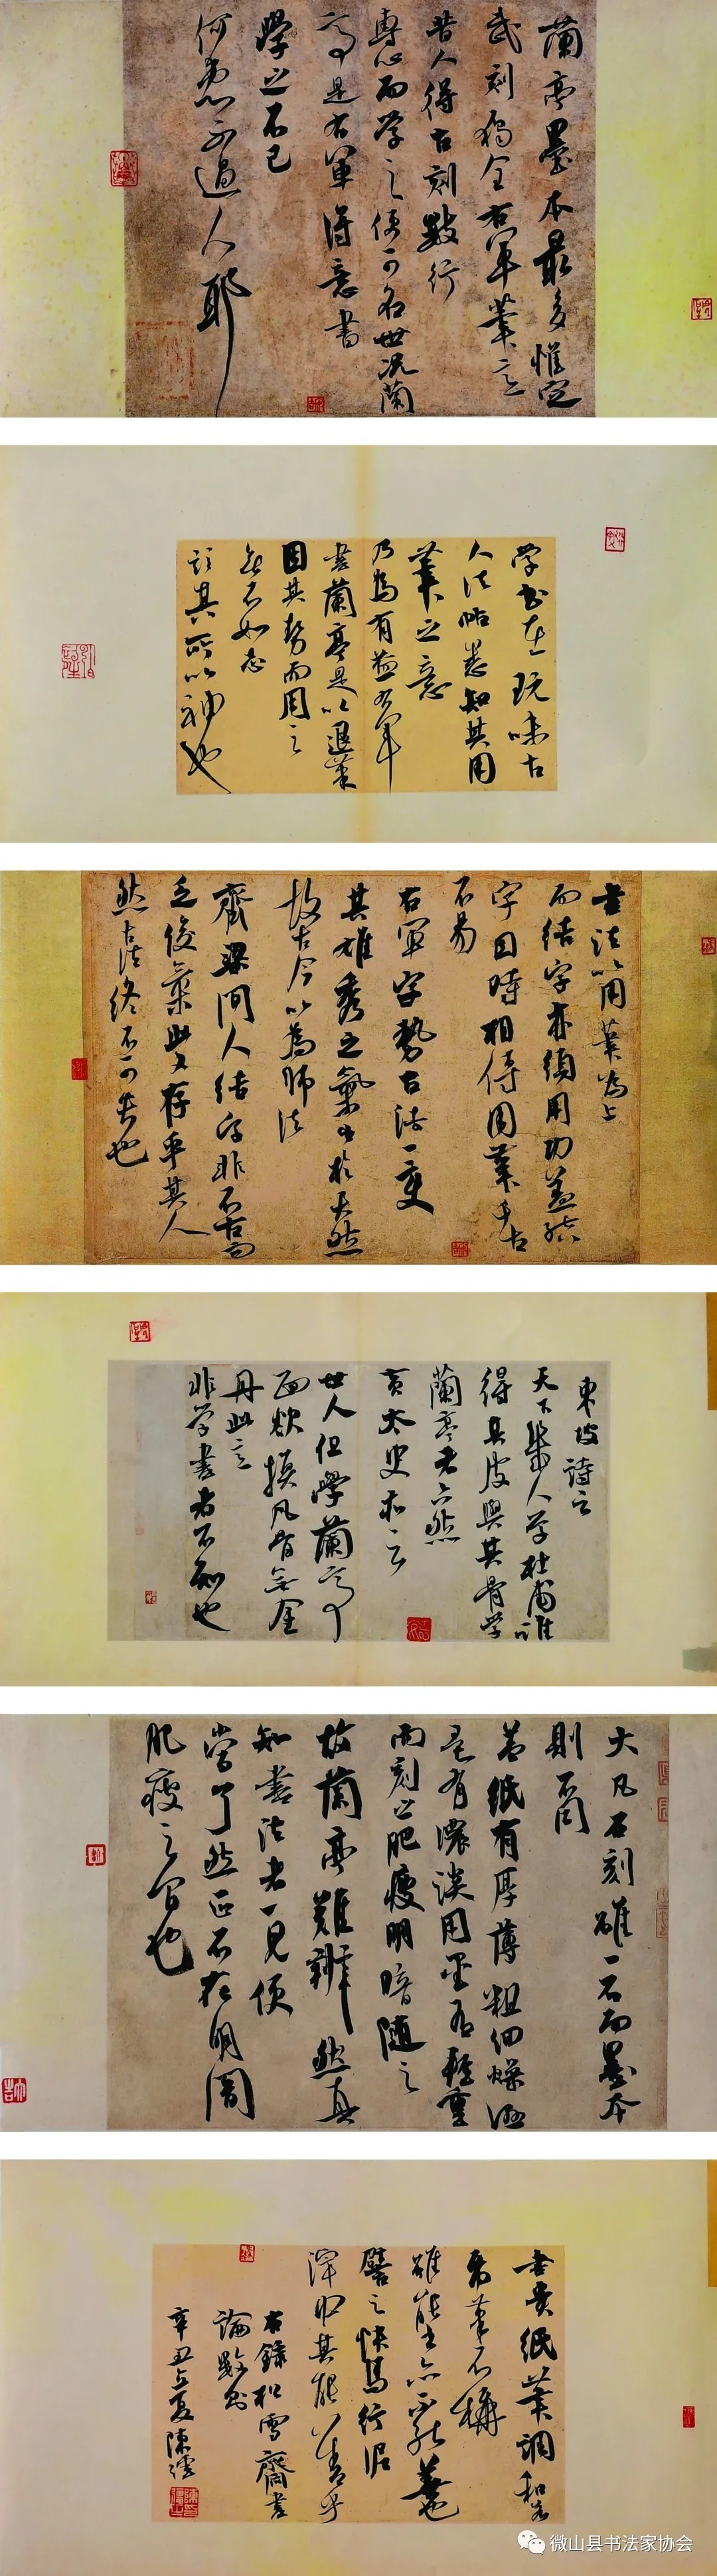 蘭亭墨本最多惟定
武刻獨全右軍筆意
昔人得古刻數行
專心而学之便可名世况蘭
亭是右軍得意書
學之不已
何患不過人耶
学书在玩味古
人法帖悉知其用
筆之意
乃為有益右軍
書蘭亭是以退筆
因其势而用之
無不如志
兹其所以神也
書法以用筆為上
而结字亦須用功盖结
字因時相傳用筆千古
不易
右軍字勢古法一變
其雄秀之氣出於天然
故古今以為師法
齊梁间人结字非不古而
乏俊氣此又存乎其人
然古法终不可失也
東坡诗云
天下幾人学杜甫谁
得其皮與其骨学
蘭亭者亦然
黄太史亦云
世人但學蘭亭
面欲換凡骨無金
丹此意
非学書者不知也
大凡石刻雖一石而墨本
則不同
盖紙有厚薄粗细燥濕
墨有濃淡用墨有輕重
而刻之肥瘦明暗随之
故蘭亭難辨然真
知書法者一見便
當了然正不在明闇
肥瘦之间也
書貴紙筆調和若
紙筆不稱
雖能書亦不能善也
譬之快馬行泥
滓中其能善乎
右錄松雪齋書
論數则
辛丑立夏陳
微山县书法家协会